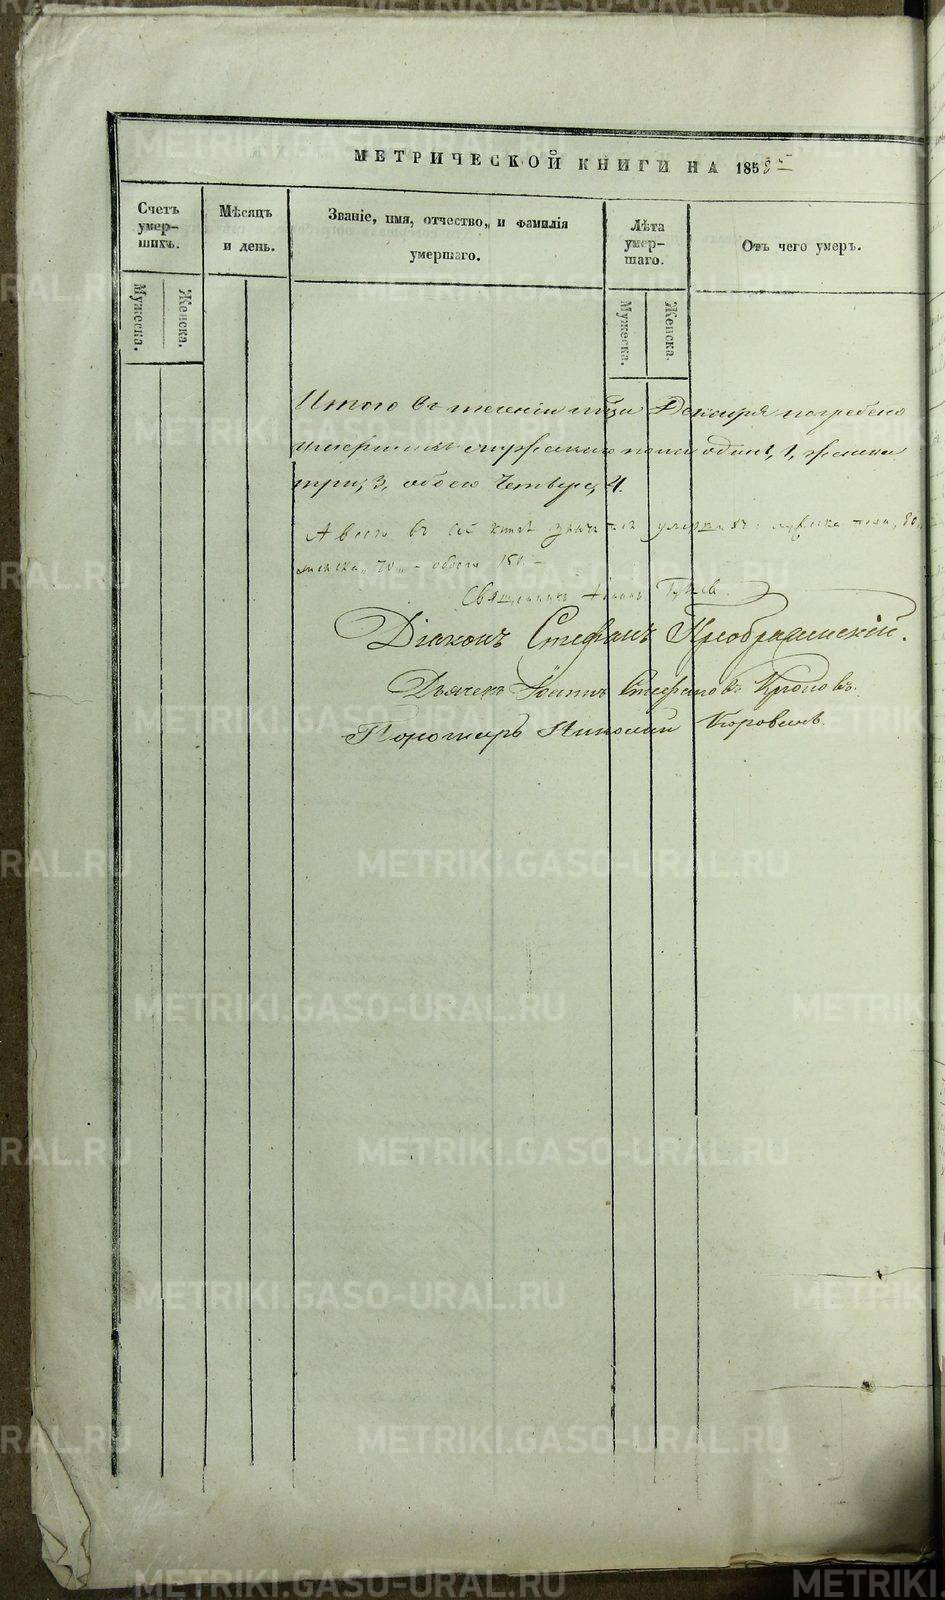 МЕТРИЧЕСКОЙ КНИГИ НА 185
Счетъ умер-
шихъ.
Мѣсяцъ
и день.
Званіе, имя, отчество, и фамилія
умершаго.
Лѣта
умер-
шаго.
Отъ чего умеръ.
Мужеска.
Женска.
Мужеска.
Женска.
Итого въ теченіи Декабря погребено
умершихъ мужескаго пола одинъ, 1, женска
три, 3, обоего Четверо, 4.
А всего въ сей книгѣ умершихъ: мужеска пола,
женска, 70 обоего 150
Священникъ
Діаконъ Стефанъ Преображенскій.
Дьячекъ Іоаннъ Стефановъ
Пономарь Николай Коровинъ.
METRIKI.GASO-URAL.RU